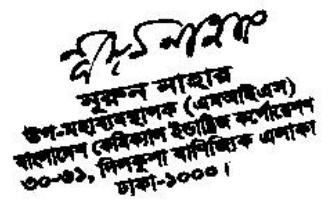 নুরুন নাহার
উপ-মহাব্যবস্থাপক (এমআইএস)
বাংলাদেশ কেমিক্যাল ইন্ডাষ্ট্রিজ কর্পোরেশন
৩০-৩১, দিলকুশা বাণিজ্যিক এলাকা
ঢাকা-১০০০।